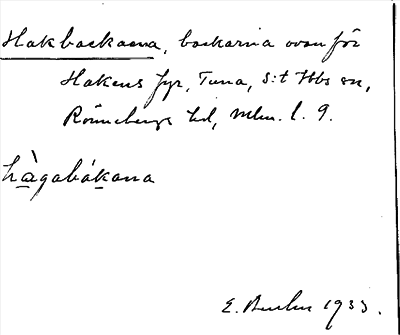 Hakbackarna, backarna ovanför
Hakens fyr, Tuna, S:t Ibbs sn,
Rönnebergs hd, Mlm. l. 9.
hàgabákana
E. 1933.